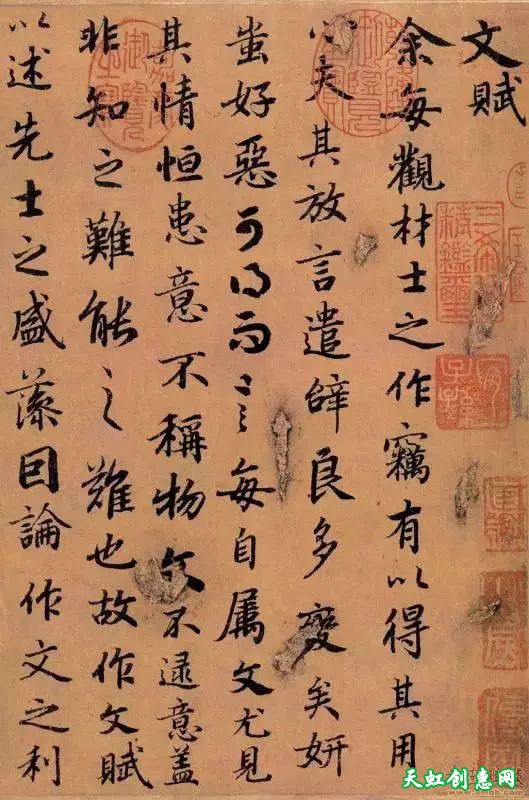 文賦
余每觀材士之作竊有以得其用
心夫其放言遣辭良多變矣妍
蚩好惡可得而言每自属文尤見
其情恒患意不稱物文不逮意盖
非知之難能之難也故作文賦
以述先士之盛藻因論作文之利
三希堂精鑑璽
宜子孫
天虹创意网